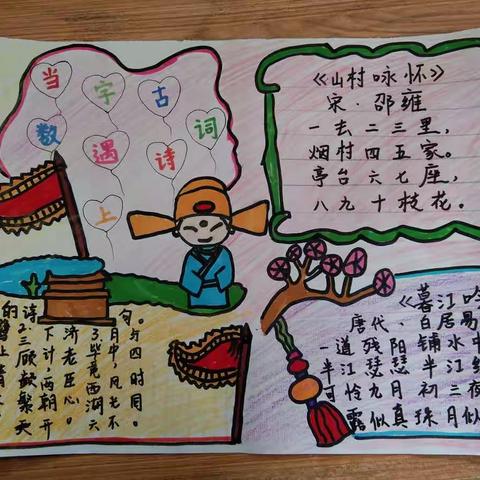 当数字遇上古诗词
《山村咏怀》
宋·邵雍
一去二三里，
烟村四五家。
亭台六七座，
八九十枝花。
的诗句。
鹭上青
2.三顾频繁天
下计，两朝开
济老臣心。
3.毕竟西湖六
月中，风光不
与四时同。
《暮江吟
唐代、白居易
一道残阳铺水中
半江瑟瑟半江红
可怜九月初三夜
露似真珠月似